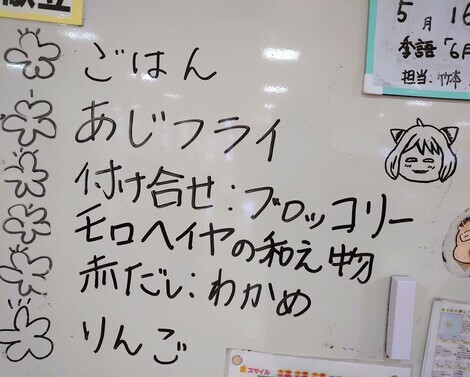 献立
ごはん
あじフライ
付け合せ:ブロッコリー
モロヘイヤの和え物
赤だし:わかめ
りんご
5月16
季語「6月
担当:竹本
スマイル